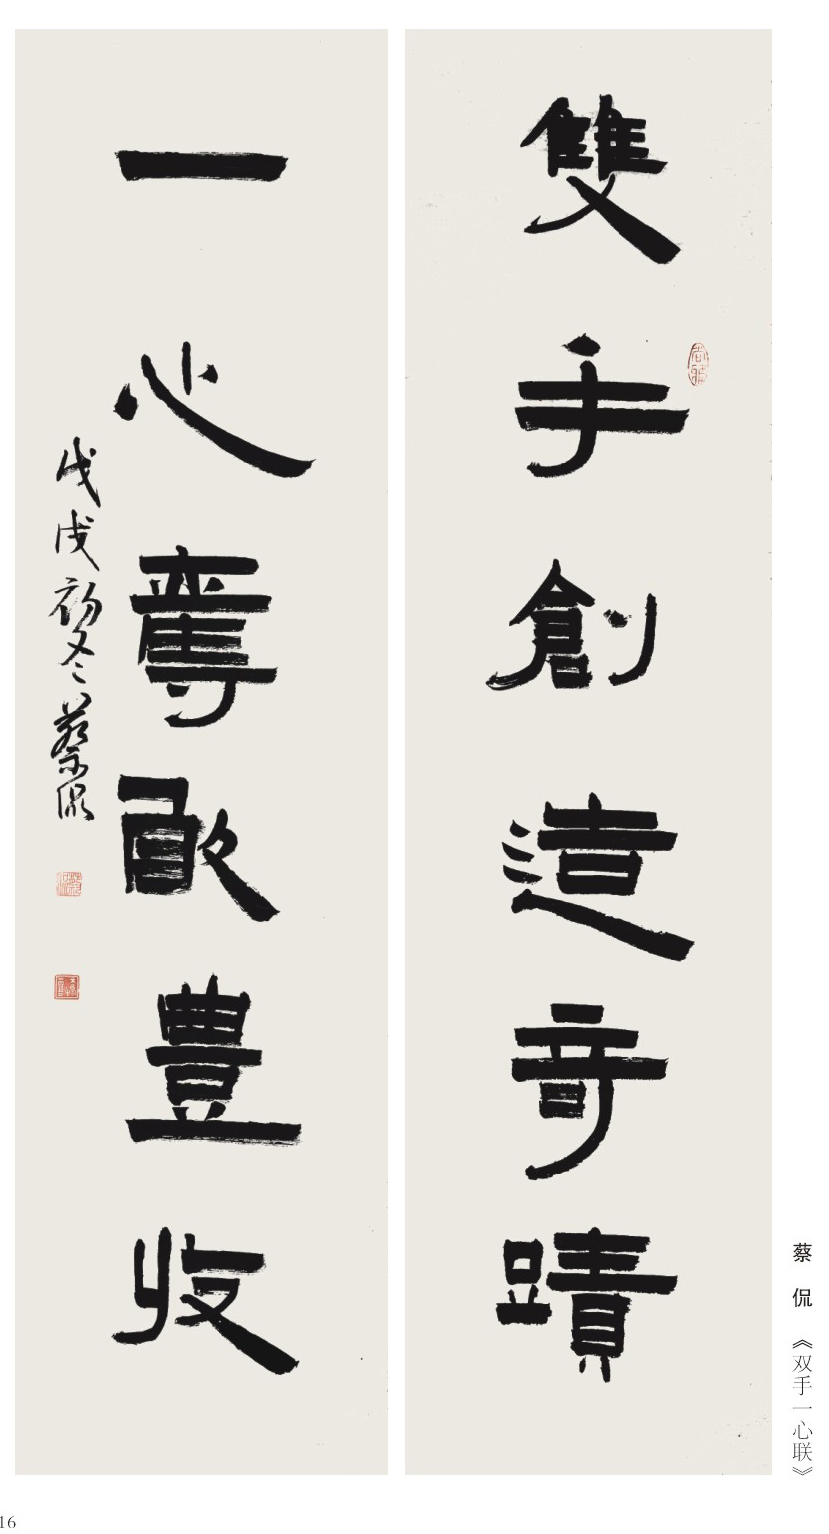 雙手創造奇蹟
一心奪取豐收
戊戌初冬蔡侃
蔡 侃 《双手一心联》
16